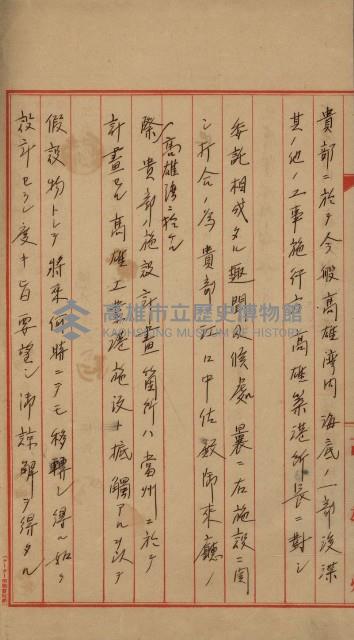 貴部ニ於テ今般高雄湾内海底ノ一部浚渫
其ノ他ノ工事施行方高雄築港所長ニ対シ
委託相成タル趣聞及候処曩ニ右施設ニ関
シ打合ノ為貴部 江口中佐殿御来庁ノ
際高雄港ニ於ケル貴部ノ施設計画箇所ハ当州ニ於テ
計画セル高雄工業港施設ト抵触アルヲ以テ
仮設物トシテ将来何時ニテモ移転シ得ル如ク
設計セラレ度キ旨要望シ御諒解ヲ得タル
高雄市立歷史博物館
KAOHSIUNG MUSEUM OF HISTORY